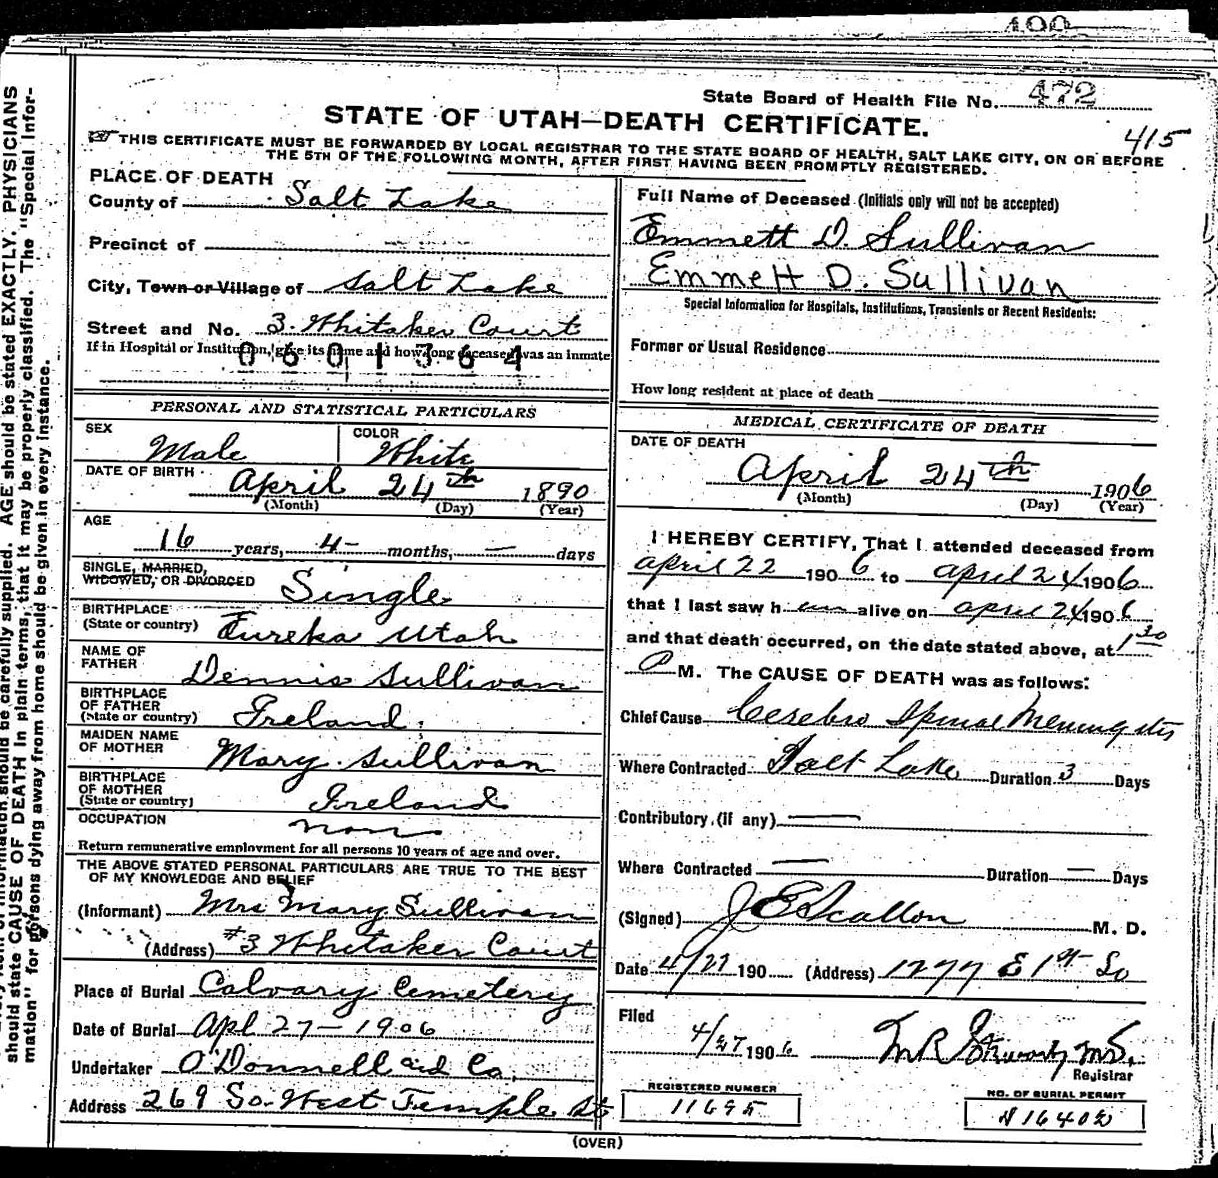 490
State Board of Health File No. 472
STATE OF UTAH—DEATH CERTIFICATE.
415
THIS CERTIFICATE MUST BE FORWARDED BY LOCAL REGISTRAR TO THE STATE BOARD OF HEALTH, SALT LAKE CITY, ON OR BEFORE
THE 5TH OF THE FOLLOWING MONTH, AFTER FIRST HAVING BEEN PROMPTLY REGISTERED.
PLACE OF DEATH
County of Salt Lake
Precinct of
City, Town or Village of Salt Lake
Street and No. 3. Whitaker Court
If in Hospital or Institution, give its name and how long deceased was an inmate
0601364
PERSONAL AND STATISTICAL PARTICULARS
SEX Male COLOR White
DATE OF BIRTH April 24th 1890
(Month) (Day) (Year)
AGE
16 years, 4 months, — days
SINGLE, MARRIED,
WIDOWED, OR DIVORCED Single
BIRTHPLACE
(State or country) Eureka Utah
NAME OF
FATHER Dennis Sullivan
BIRTHPLACE
OF FATHER
(State or country) Ireland
MAIDEN NAME
OF MOTHER Mary Sullivan
BIRTHPLACE
OF MOTHER
(State or country) Ireland
OCCUPATION non
Return remunerative employment for all persons 10 years of age and over.
THE ABOVE STATED PERSONAL PARTICULARS ARE TRUE TO THE BEST
OF MY KNOWLEDGE AND BELIEF
(Informant) Mrs Mary Sullivan
(Address) #3 Whitaker Court
Place of Burial Calvary Cemetery
Date of Burial Apl 27-1906
Undertaker O'Donnell and Co.
Address 269 So. West Temple St
Full Name of Deceased (Initials only will not be accepted)
Emmett D. Sullivan
Emmett D. Sullivan
Special Information for Hospitals, Institutions, Transients or Recent Residents:
Former or Usual Residence
How long resident at place of death
MEDICAL CERTIFICATE OF DEATH
DATE OF DEATH
April 24th 1906
(Month) (Day) (Year)
I HEREBY CERTIFY, That I attended deceased from
April 22 1906 to April 24 1906
that I last saw him alive on April 24 1906
and that death occurred, on the date stated above, at 1 30
P M. The CAUSE OF DEATH was as follows:
Chief Cause Cerebro Spinal Meningitis
Where Contracted Salt Lake Duration 3 Days
Contributory (if any) —
Where Contracted — Duration — Days
(Signed) J E Scallon M. D.
Date 4/27 190 (Address) 1277 E 1st So
Filed
4/27 1906
Registrar
REGISTERED NUMBER
11695
NO. OF BURIAL PERMIT
16402
(OVER)
AGE should be stated EXACTLY. PHYSICIANS
should state CAUSE OF DEATH in plain terms, that it may be properly classified. The "Special Infor-
mation" for persons dying away from home should be given in every instance.